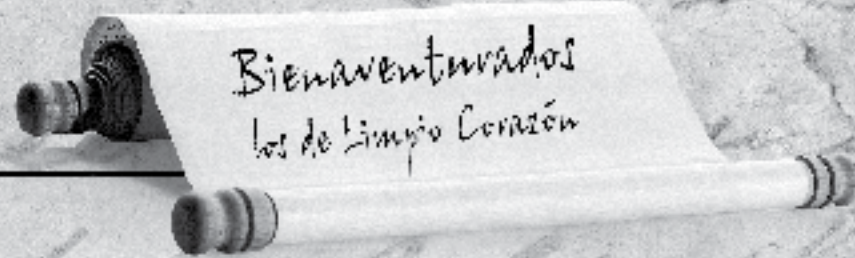 Bienaventurados
los de Limpio Corazón